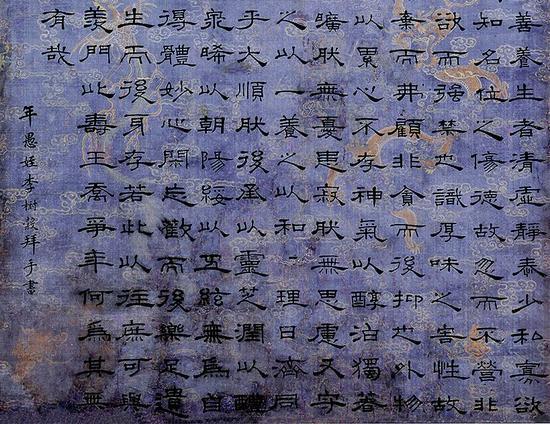 善養生者清虛靜泰少私寡欲
知名位之傷德故忽而不營非
欲而強禁也識厚味之害性故
棄而弗顧非貪而後抑也外物
以累心不存神氣以醇泊獨著
曠肰無憂患寂肰無思慮又守
之以一養之以和〻理日濟同
乎大順肰後烝以靈芝潤以醴
泉晞以朝陽綏以五絃無爲自
得體妙心閑忘歡而後樂足遺
生而後身存若此以往庶可與
羨門比壽王喬爭年何爲其無
有哉
年愚姪李樹穀拜手書